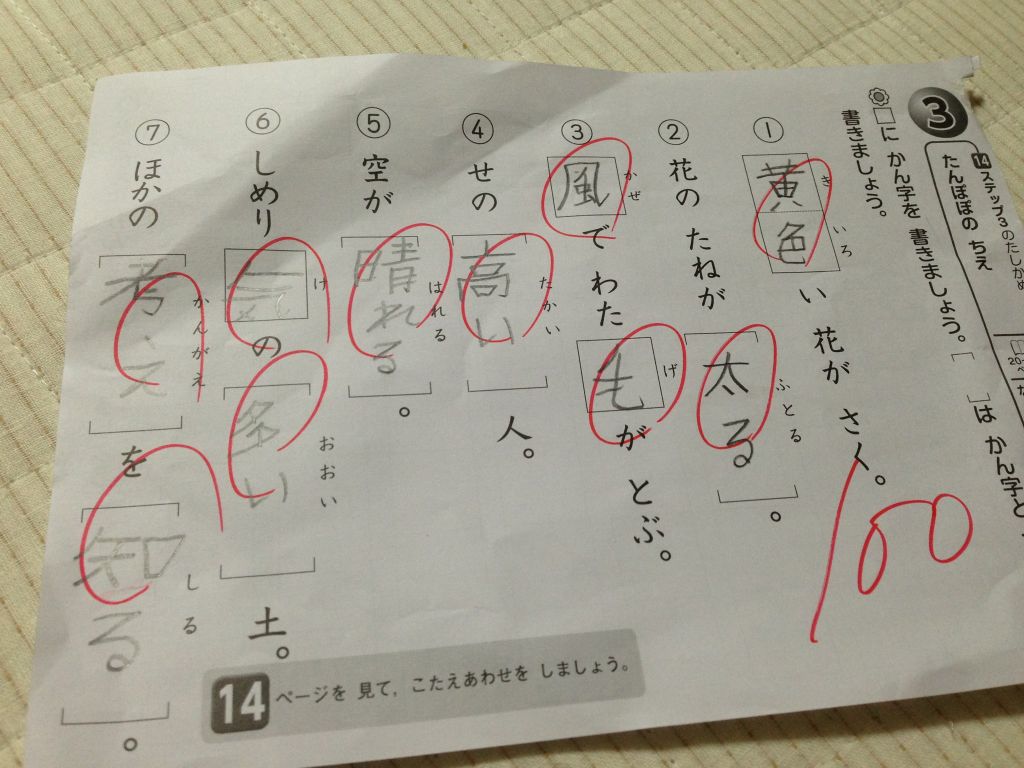 3
14 ステップ3のたしかめ
たんぽぽの ちえ
□に かん字を 書きましょう。［ ］は かん字と
書きましょう。
① 黄色い 花が さく。
き いろ
② 花の たねが 太る。
ふとる
③ 風で わた毛が とぶ。
かぜ げ
④ せの 高い 人。
たかい
⑤ 空が 晴れる。
はれる
⑥ しめり気の 多い 土。
け おおい
⑦ ほかの 考えを 知る。
かんがえ しる
100
14 ページを 見て，こたえあわせを しましょう。